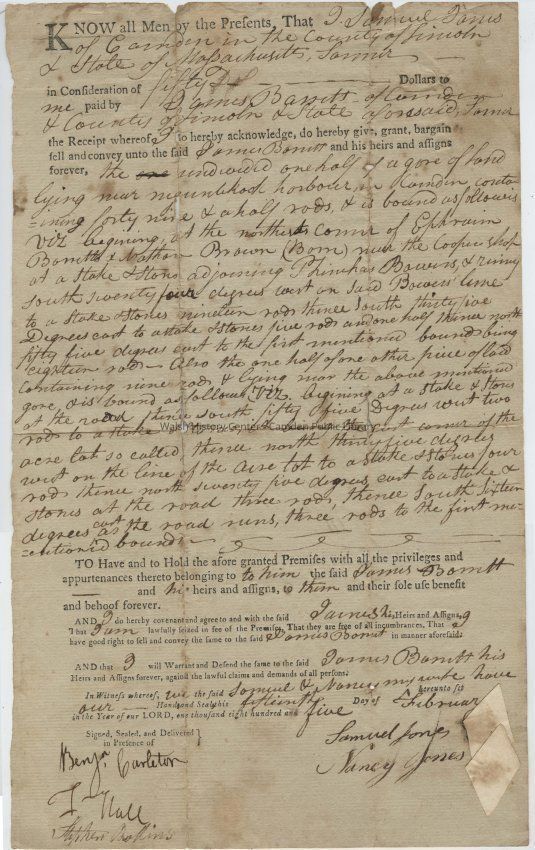 KNOW all Men by the Presents, That I Samuel Jones
of Camden in the County of Lincoln
& State of Massachusetts,
in Consideration of fifty Dollars to
me paid by James Barrett of Camden
& County of Lincoln & State aforesaid,
the Receipt whereof I do hereby acknowledge, do hereby give, grant, bargain
sell and convey unto the said James Barrett and his heirs and assigns
forever, the undivided one half of a gore of land
lying near harbour in Camden contai
=ning forty nine & a half rods, & is bound as follows
Viz begining at the northest corner of Ephraim
Barretts & Nathan Brown (Barn) near the Coopers shop
at a stake & stons adjoining Phinehas Bowers, &
south seventy four degrees west on said Bowers line
to a stake & stones nineteen rods thence South thirty five
Degrees east to a stake & stones five rods and one half thence north
fifty five degrees east to the first mentioned bounds being
eighteen rods – Also the one half of one other piece of land
containing nine rods & lying near the above mentioned
gore, & is bound as follows Viz. begining at a stake & stones
at the road thence south fifty five degrees west two
rods to a stake corner of the
Walsh History Center - Camden Public Library
acre lot so called thence north thirty five degrees
west on the line of the Acre lot to a stake & stones four
rods thence north seventy five degrees east to a stake &
stones at the road three rods, thence South sixteen
degrees east as the road runs, three rods to the first me
=entioned bounds
TO Have and to Hold the afore granted Premises with all the privileges and
appurtenances thereto belonging to him the said James Barrett
and his heirs and assigns, to them and their sole use benefit
and behoof forever.
AND I do hereby covenant and agree to and with the said James his Heirs and Assigns,
That I am lawfully seized in fee of the Premises, That they are free of all incumbrances, That I
have good right to sell and convey the same to the said James Barrett in manner aforesaid.
AND that I will Warrant and Defend the same to the said James Barrett his
Heirs and Assigns forever, against the lawful claims and demands of all persons.
In Witness whereof, we the said Samuel & Nancy my wife have hereunto set
our Hands and Seals this fifteenth Day of Februar
in the Year of our LORD, one thousand eight hundred and five
Signed, Sealed, and Delivered
in Presence of
Samuel Jones
Nancy Jones
Benja Carleton
Hall
Stephen